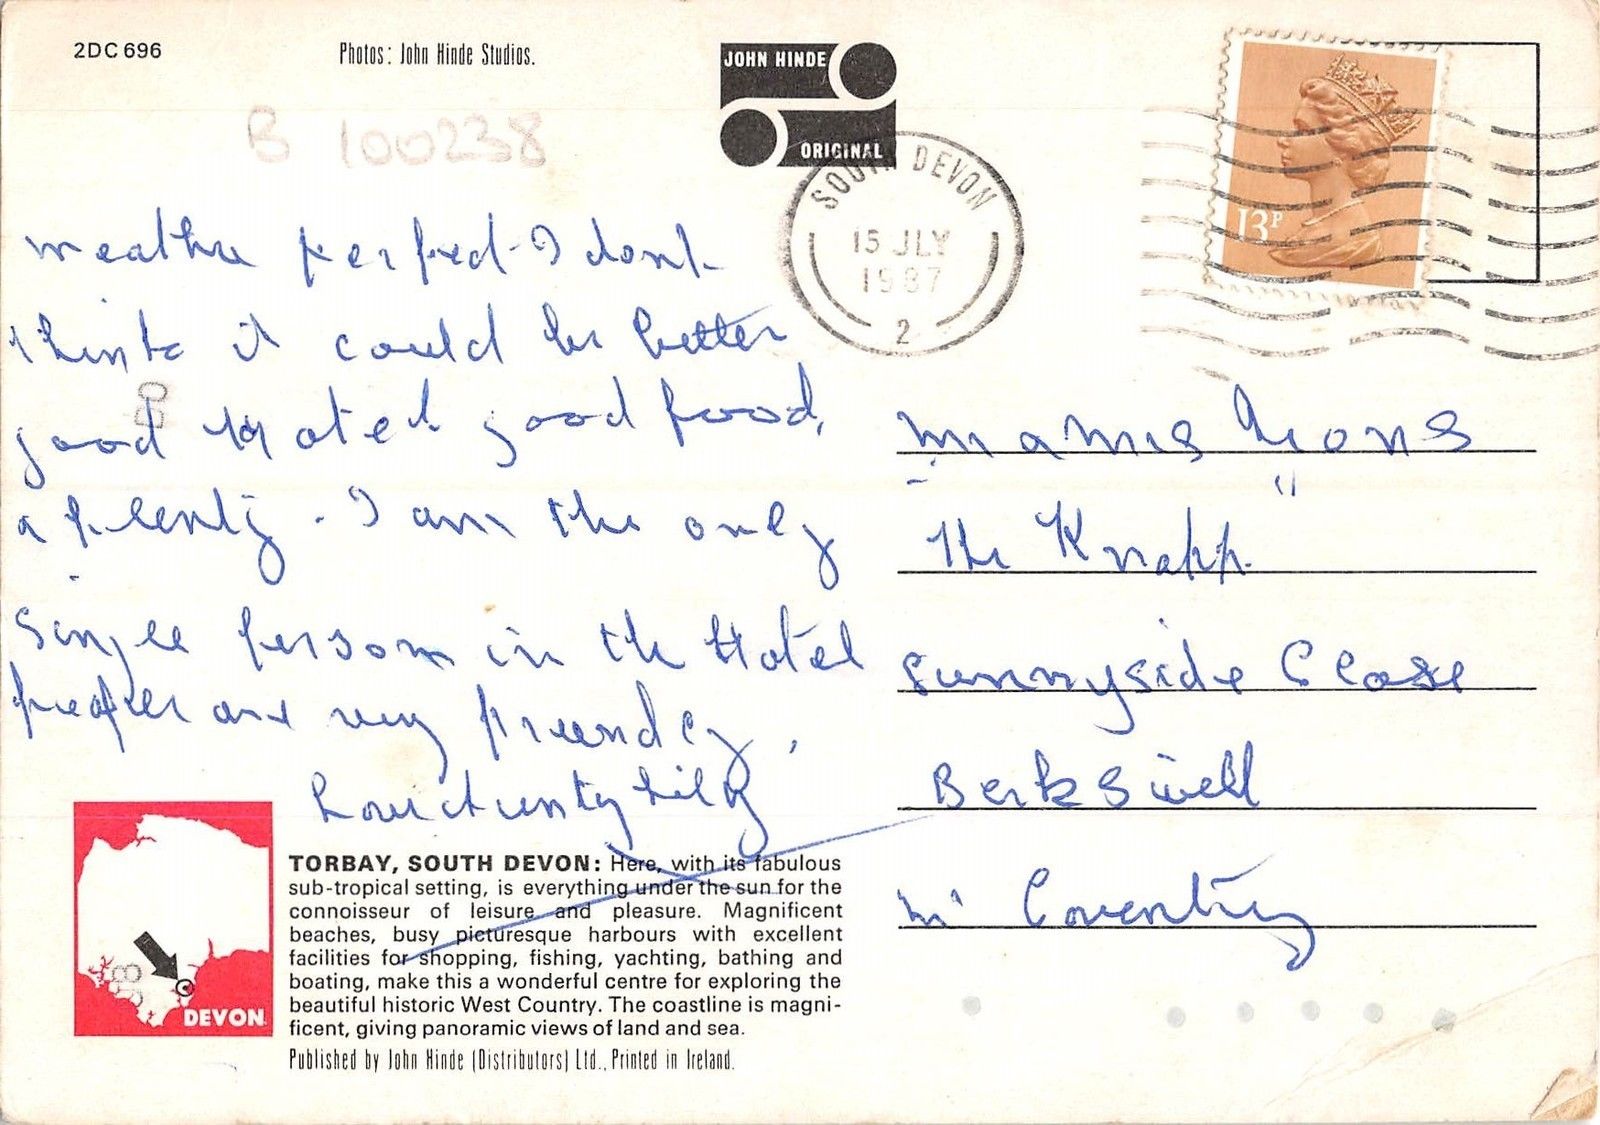 2DC 696
Photos: John Hinde Studios.
JOHN HINDE
ORIGINAL
B 100238
SOUTH DEVON
15 JLY
1987
2
13P
weather perfect - I dont
think it could be better
good Hotel good food,
a plenty - I am the only
single person in the Hotel
people are very friendly,
Love Aunty Lily
X
Mr and Mrs Lyons
"The Knapp"
Sunnyside Close
Berkswell
Nr Coventry
TORBAY, SOUTH DEVON: Here, with its fabulous
sub-tropical setting, is everything under the sun for the
connoisseur of leisure and pleasure. Magnificent
beaches, busy picturesque harbours with excellent
facilities for shopping, fishing, yachting, bathing and
boating, make this a wonderful centre for exploring the
beautiful historic West Country. The coastline is magni-
ficent, giving panoramic views of land and sea.
Published by John Hinde (Distributors) Ltd., Printed in Ireland.
DEVON